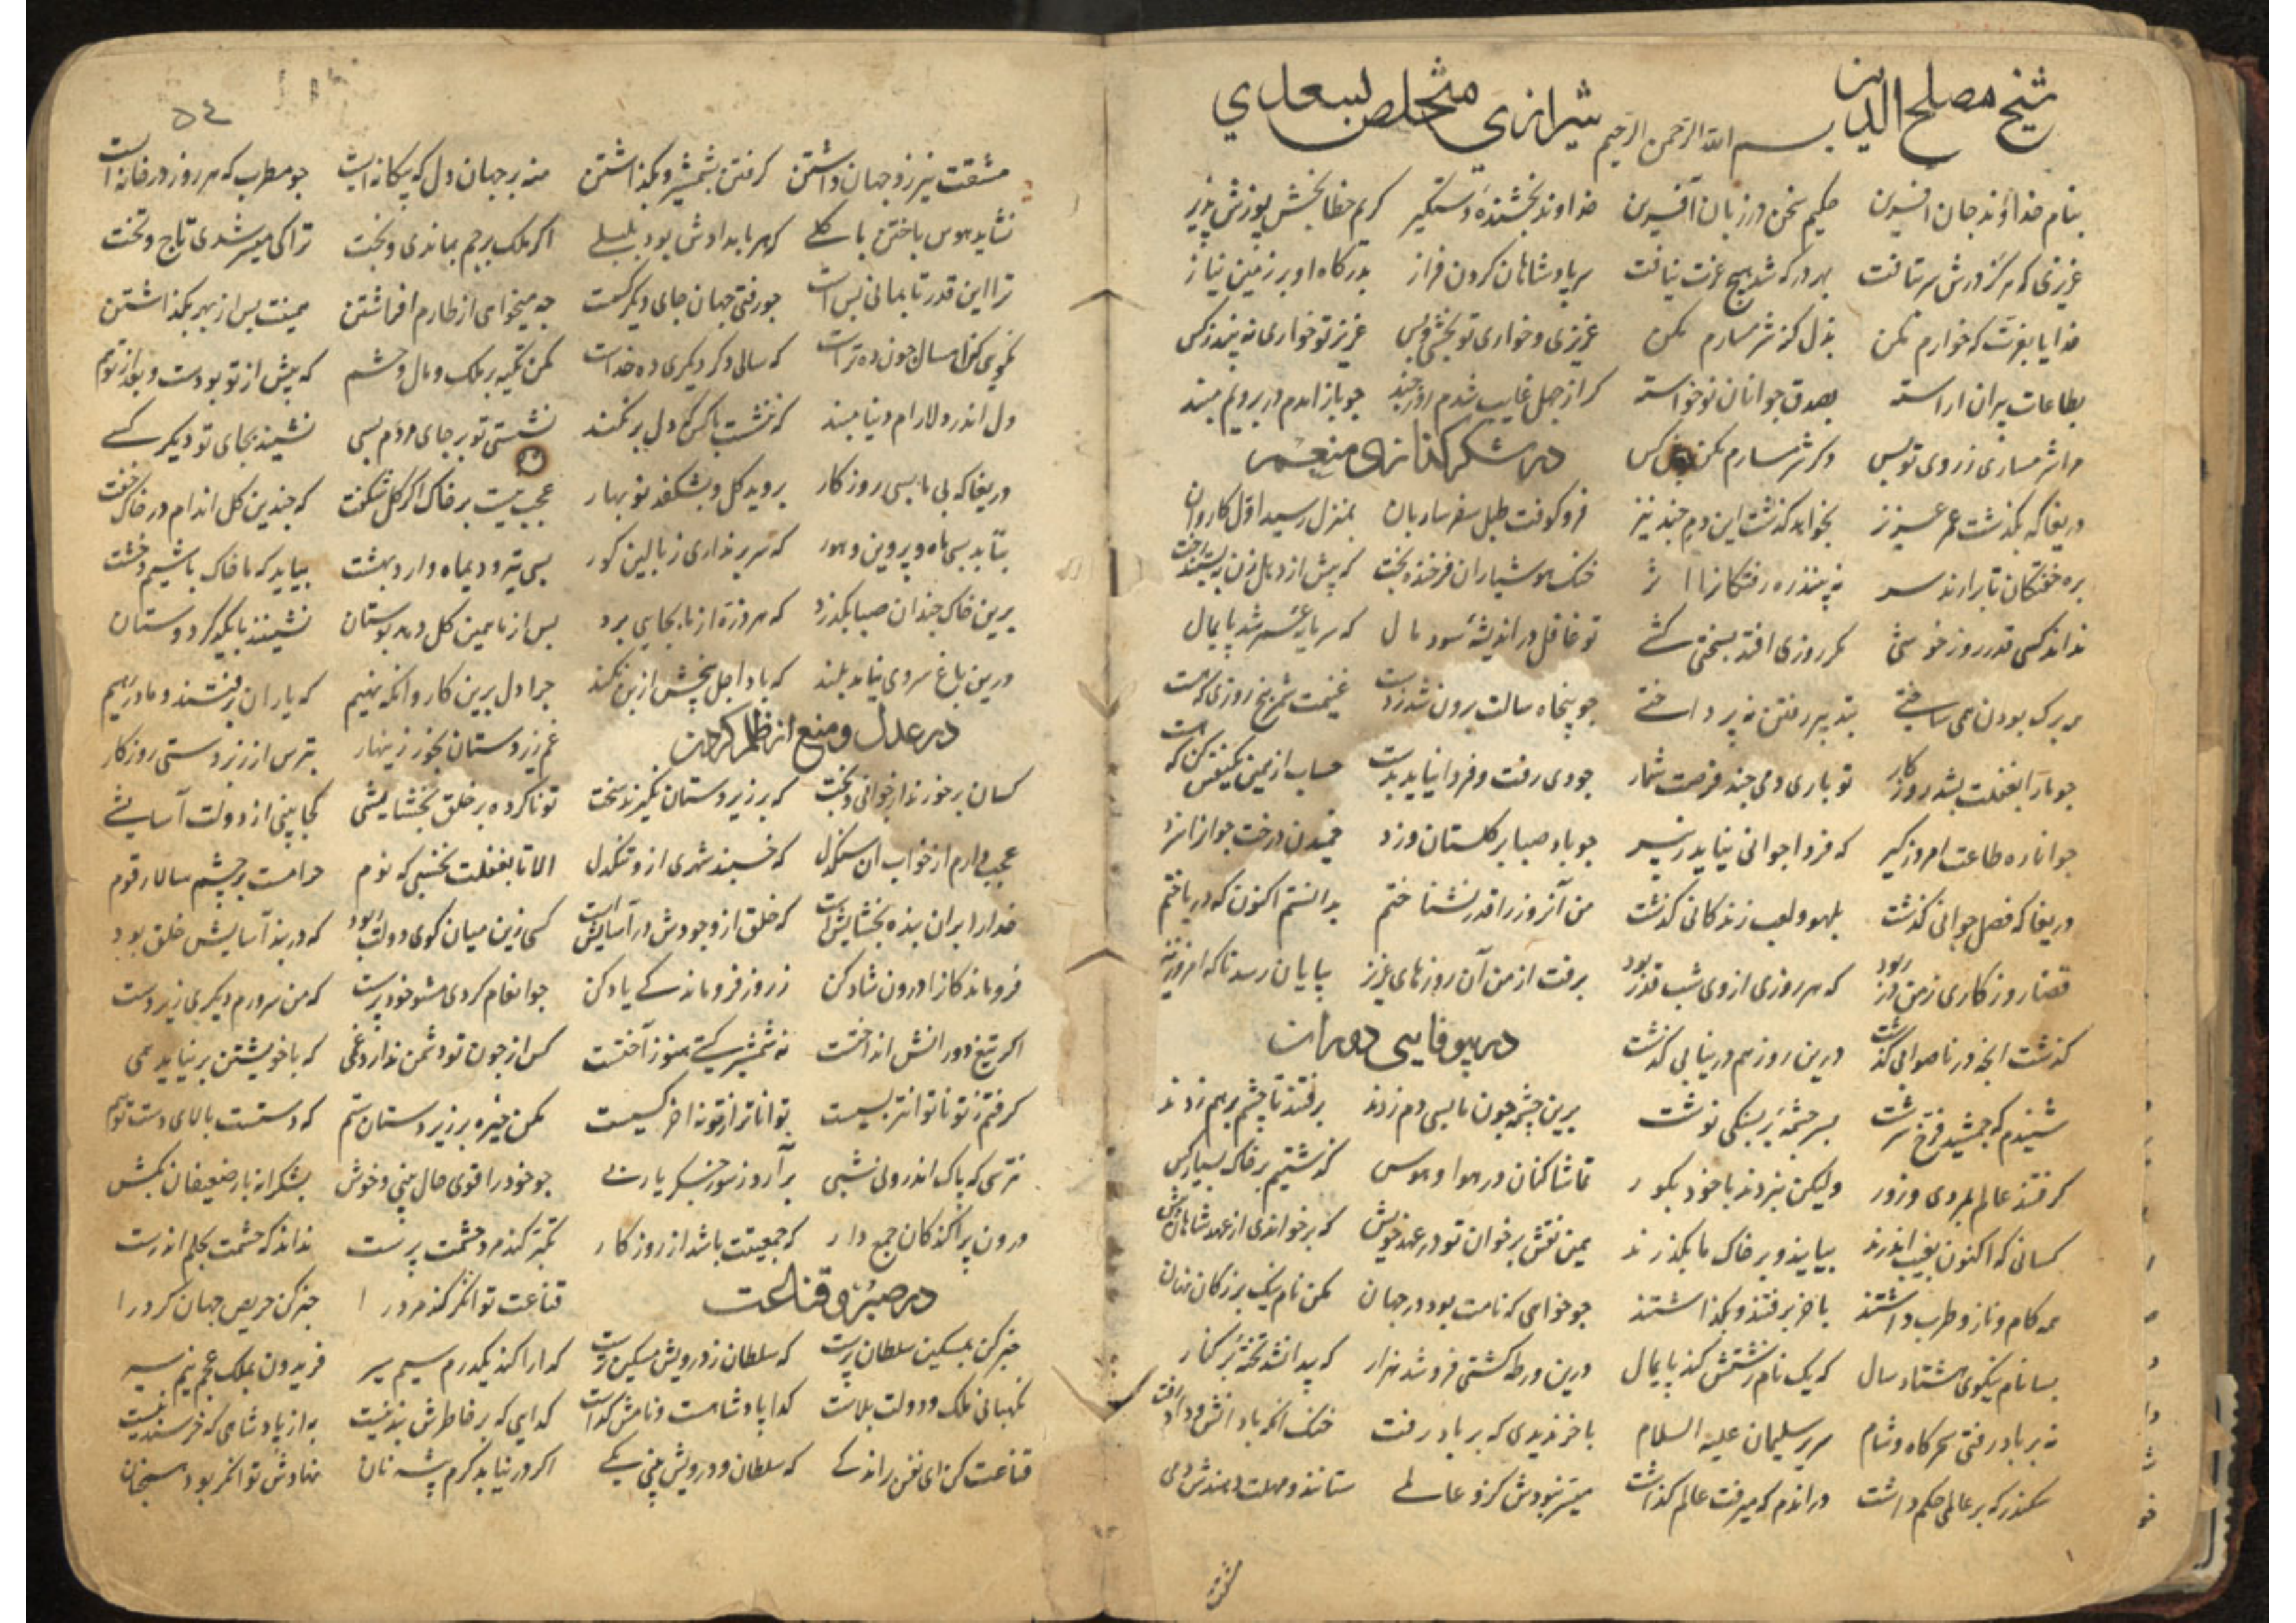 شیخ مصلح الدین شیرازی متخلص بسعدی
بسم الله الرحمن الرحیم
بنام خداوند جان آفرین حکیم سخن در زبان آفرین خداوند بخشنده دستگیر کریم خطا بخش پوزش پذیر
عزیزی که هر کز درش سر بتافت بهر در که شد هیچ عزت نیافت سر پادشاهان کردن فراز بدرکاه او بر زمین نیاز
خدایا بعزت که خوارم مکن بذل کنه شرمسارم مکن عزیزی و خواری تو بخشی و بس عزیز تو خواری نه بیند زکس
بطاعات پیران آراسته بصدق جوانان نوخواسته کر از جهل غایب شدم روز چند چو باز آمدم در برویم مبند
مرا شرمساری ز روی تو بس دکر شرمسارم مکن پیش کس
در شکر کذاری منعم
دریغا که بکذشت عمر عزیز بخواهد کذشت این دم چند نیز فرو کوفت طبل سفر ساربان بمنزل رسید اول کاروان
بره خفتکان تا برارند سر نه بینند ره رفتکانرا اثر خنک هوشیاران فرخنده بخت که پیش از دهل زن بسازند رخت
نداند کسی قدر روز خوشی مکر روزی افتد بسختی کشی تو غافل در اندیشه سود مال که سرمایه عمر شد پایمال
همه برک بودن همی ساختی بتدبیر رفتن نه پرداختی چو پنجاه سالت برون شد ز دست غنیمت شمر پنج روزی که هست
چو ما را بغفلت بشد روزکار تو باری دمی چند فرصت شمار چو دی رفت و فردا نیاید بدست حساب از همین یکنفس کن که هست
جوانا ره طاعت امروز کیر که فردا جوانی نیاید ز پیر چو باد صبا بر کلستان وزد چمیدن درخت جوانرا سزد
دریغا که فصل جوانی کذشت بلهو و لعب زندکانی کذشت من آنروز را قدر نشناختم بدانستم اکنون که درباختم
قضا روزکاری ز من در ربود که هر روزی از وی شب قدر بود برفت از من آن روزهای عزیز بپایان رسد ناکه امروز نیز
کذشت آنچه در ناصوابی کذشت درین روز هم در نیابی کذشت
در بیوفایی دوران
شنیدم که جمشید فرخ سرشت بسرچشمه بر بسنکی نوشت برین چشمه چون ما بسی دم زدند برفتند تا چشم بر هم زدند
کرفتند عالم بمردی و زور ولیکن نبردند با خود بکور تماشاکنان در هوا و هوس کذشتیم بر خاک بسیار کس
کسانی که اکنون بغیب اندرند بیایند و بر خاک ما بکذرند همین نقش برخوان تو در عهد خویش که برخواندی از عهد شاهان پیش
همه کام و ناز و طرب داشتند باخر برفتند و بکذاشتند چو خواهی که نامت بود در جهان مکن نام نیک بزرکان نهان
بسا نام نیکوی هشتاد سال که یک نام زشتش کند پایمال درین ورطه کشتی فرو شد هزار که پیدا نشد تخته بر کنار
نه بر باد رفتی سحرکاه و شام سریر سلیمان علیه السلام باخر ندیدی که بر باد رفت خنک آنکه با دانش و داد رفت
سکندر که بر عالمی حکم داشت دراندم که میرفت عالم کذاشت میسر نبودش کزو عالمی ستانند و مهلت دهندش دمی
۵۴
مشقت نیرزد جهان داشتن کرفتن بشمشیر و بکذاشتن منه بر جهان دل که بیکانه ایست چو مطرب که هر روز در خانه ایست
نشاید هوس باختن با کلی که هر بامدادش بود بلبلی اکر ملک بر جم بماندی و بخت ترا کی میسر شدی تاج و تخت
ترا این قدر تا بمانی بس است چو رفتی جهان جای دیکر کست چه میخواهی از طارم افراشتن همینت بس از بهر بکذاشتن
نکویی کن امسال چون ده تراست که سالی دکر دیکری ده خداست مکن تکیه بر ملک و مال و حشم که پیش از تو بودست و بعد از تو هم
دل اندر دلارام دنیا مبند که ننشست با کس که دل برنکند نشستی تو بر جای مردم بسی نشیند بجای تو دیکر کسی
دریغا که بی ما بسی روزکار بروید کل و بشکفد نو بهار عجب نیست بر خاک اکر کل شکفت که چندین کل اندام در خاک خفت
بتابد بسی ماه و پروین و هور که سر برنداری ز بالین کور بسی تیر و دیماه و اردبهشت بیاید که ما خاک باشیم و خشت
برین خاک چندان صبا بکذرد که هر ذره از ما بجایی برد پس از ما همین کل دهد بوستان نشینند با یکدکر دوستان
درین باغ سروی نیامد بلند که باد اجل بیخش از بن نکند چرا دل برین کاروانکه نهیم که یاران برفتند و ما در رهیم
در عدل و منع از ظلم کردن
غم زیردستان بخور زینهار بترس از زبردستی روزکار
کسان برخورند از جوانی و بخت که بر زیردستان نکیرند سخت تو ناکرده بر خلق بخشایشی کجا بینی از دولت آسایشی
عجب دارم از خواب آن سنکدل که خسبند شهری ازو تنکدل الا تا بغفلت نخسپی که نوم حرامست بر چشم سالار قوم
خدا را بران بنده بخشایش است که خلق از وجودش در آسایش است کسی زین میان کوی دولت ربود که در بند آسایش خلق بود
فروماندکانرا درون شاد کن ز روز فروماندکی یاد کن چو انعام کردی مشو خودپرست که من سرورم دیکری زیردست
اکر تیغ دورانش انداختست نه شمشیر کیتی هنوز آختست کس از چون تو دشمن ندارد غمی که با خویشتن برنیاید همی
کرفتم ز تو ناتوانتر بسیست تواناتر از تو نه آخر کسیست مکن خیره بر زیردستان ستم که دستیست بالای دست تو هم
نترسی که پاک اندرونی شبی برآرد ز سوز جکر یاربی چو خود را قوی حال بینی و خوش بشکرانه بار ضعیفان بکش
درون پراکندکان جمع دار که جمعیتت باشد از روزکار تکبر کند مرد حشمت پرست نداند که حشمت بحلم اندرست
در صبر و قناعت
قناعت توانکر کند مرد را خبر کن حریص جهان کرد را
خبر کن بمسکین سلطان پرست که سلطان ز درویش مسکین ترست کدا را کند یکدرم سیم سیر فریدون بملک عجم نیم سیر
نکهبانی ملک و دولت بلاست کدا پادشاهست و نامش کداست کدایی که بر خاطرش بند نیست به از پادشاهی که خرسند نیست
قناعت کن ای نفس بر اندکی که سلطان و درویش بینی یکی